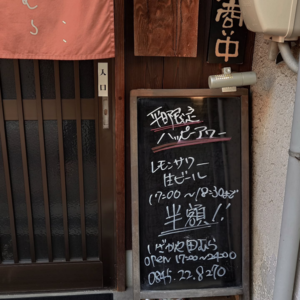 商い中
入口
平日限定
ハッピーアワー
レモンサワー
生ビール
17:00〜18:30まで
半額!!
いざかや田むら
open 17:00〜24:00
0845.22.8270